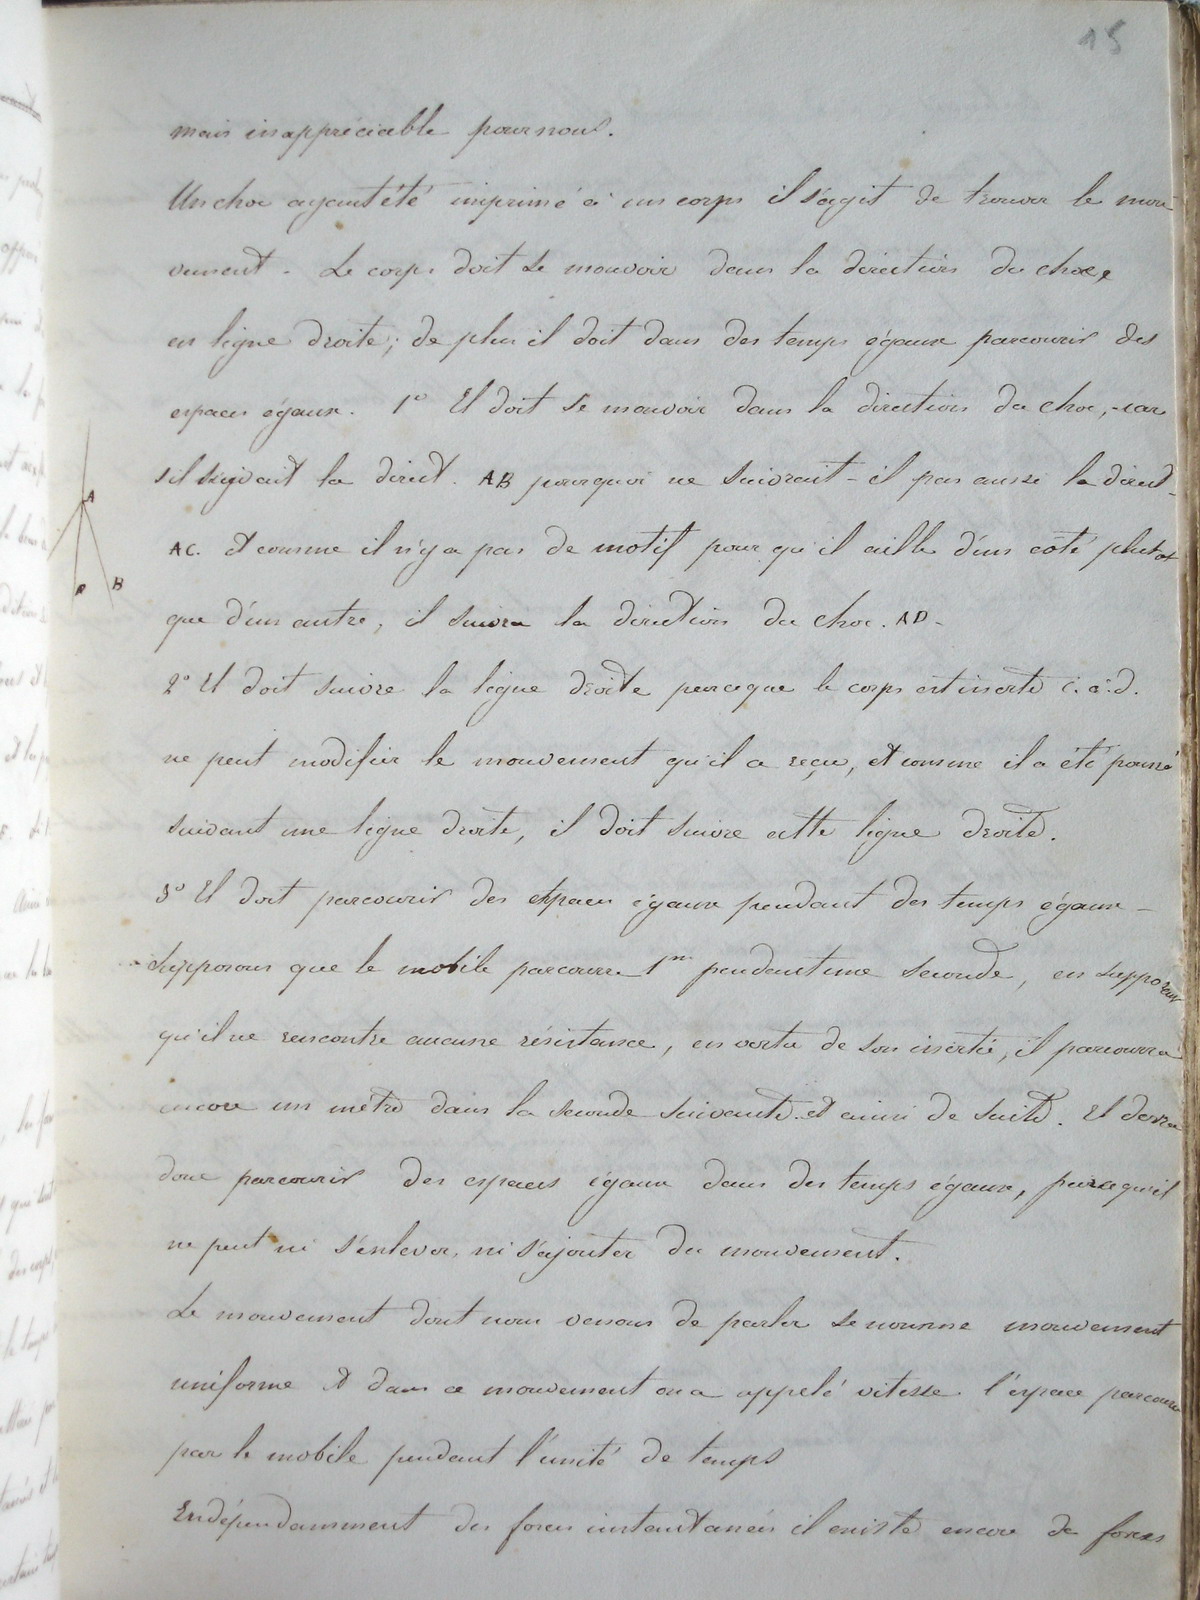 15
mais inappréciable pour nous.
Un choc ayant été imprimé à un corps il s'agit de trouver le mou-
vement. Le corps doit se mouvoir dans la direction du choc,
en ligne droite; de plus il doit dans des temps égaux parcourir des
espaces égaux. 1° Il doit se mouvoir dans la direction du choc, car
s'il suivait la direct. AB pourquoi ne suivrait-il pas aussi la direct.
A
AC. et comme il n'y a pas de motif pour qu'il aille d'un côté plutot
B
que d'un autre, il suivra la direction du choc. AD.
2° Il doit suivre la ligne droite parceque le corps est inerte c. à. d.
ne peut modifier le mouvement qu'il a reçu, et comme il a été poussé
suivant une ligne droite, il doit suivre cette ligne droite.
3° Il doit parcourir des espaces égaux pendant des temps égaux-
Supposons que le mobile parcourre 1m pendant une seconde, en supposant
qu'il ne rencontre aucune résistance, en vertu de son inertie, il parcourra
encore un mètre dans la seconde suivante et ainsi de suite. Il devra
donc parcourir des espaces égaux dans des temps égaux, parcequ'il
ne peut ni s'enlever, ni s'ajouter du mouvement.
Le mouvement dont nous venons de parler se nomme mouvement
uniforme et dans ce mouvement on a appelé vitesse l'espace parcouru
par le mobile pendant l'unité de temps
Indépendamment des forces instantanées il existe encore de forces